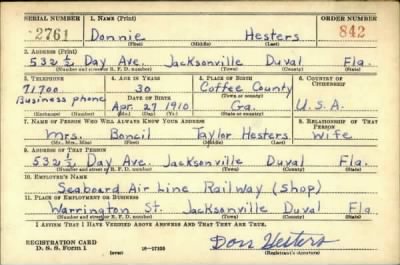 SERIAL NUMBER 1. NAME (Print) ORDER NUMBER
2761 Donnie Hesters 842
(First) (Middle) (Last)
2. ADDRESS (Print)
532 1/2 Day Ave. Jacksonville Duval Fla.
(Number and street or R. F. D. number) (Town) (County) (State)
3. TELEPHONE 4. AGE IN YEARS 5. PLACE OF BIRTH 6. COUNTRY OF CITIZENSHIP
71700 30 Coffee County
Business phone DATE OF BIRTH (Town or county)
Apr. 27 1910 Ga. U.S.A.
(Exchange) (Number) (Mo.) (Day) (Yr.) (State or country)
7. NAME OF PERSON WHO WILL ALWAYS KNOW YOUR ADDRESS 8. RELATIONSHIP OF THAT PERSON
Mrs. Taylor Hesters Wife
(Mr., Mrs., Miss) (First) (Middle) (Last)
9. ADDRESS OF THAT PERSON
532 1/2 Day Ave. Jacksonville Duval Fla.
(Number and street or R. F. D. number) (Town) (County) (State)
10. EMPLOYER'S NAME
Seaboard Air Line Railway (Shop)
11. PLACE OF EMPLOYMENT OR BUSINESS
Warrington St. Jacksonville Duval Fla.
(Number and street or R. F. D. number) (Town) (County) (State)
I AFFIRM THAT I HAVE VERIFIED ABOVE ANSWERS AND THAT THEY ARE TRUE.
REGISTRATION CARD
D. S. S. Form 1 (over) 16-17105 Don Hesters
(Registrant's signature)